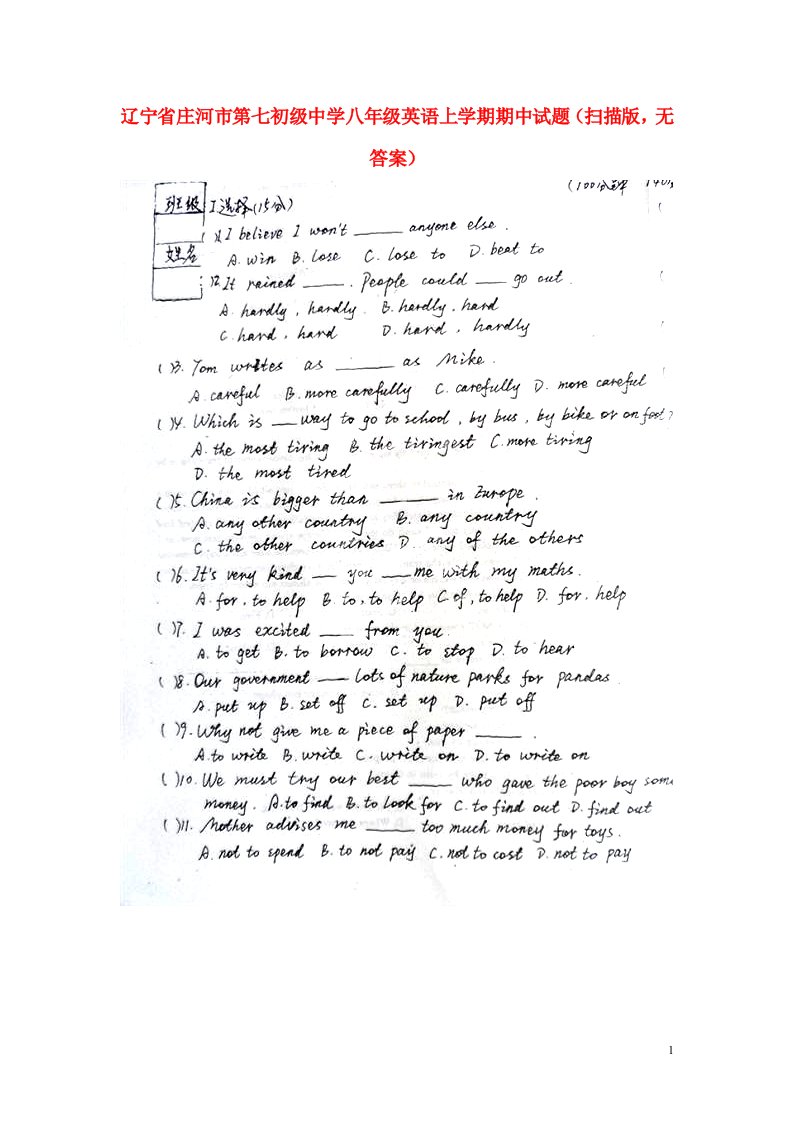 辽宁省庄河市第七初级中学八年级英语上学期期中试题（扫描版，无
答案）
(100分钟 140
班级 I 选择(15分)
( )1. I believe I won't ______ anyone else.
姓名 A. win B. lose C. lose to D. beat to
)2. It rained ____. People could ___ go out.
A. hardly, hardly. B. hardly, hard
C. hard, hard D. hard, hardly
( )3. Tom writes as ______ as Mike.
A. careful B. more carefully C. carefully D. more careful
( )4. Which is ___ way to go to school, by bus, by bike or on foot?
A. the most tiring B. the tiringest C. more tiring
D. the most tired
( )5. China is bigger than ______ in Europe.
A. any other country B. any country
C. the other countries D. any of the others
( )6. It's very kind ___ you ___ me with my maths.
A. for, to help B. to, to help C. of, to help D. for, help
( )7. I was excited ____ from you.
A. to get B. to borrow C. to stop D. to hear
( )8. Our government ____ lots of nature parks for pandas.
A. put up B. set off C. set up D. put off
( )9. Why not give me a piece of paper ______.
A. to write B. write C. write on D. to write on
( )10. We must try our best _____ who gave the poor boy some
money. A. to find B. to look for C. to find out D. find out
( )11. Mother advises me _____ too much money for toys.
A. not to spend B. to not pay C. not to cost D. not to pay
1